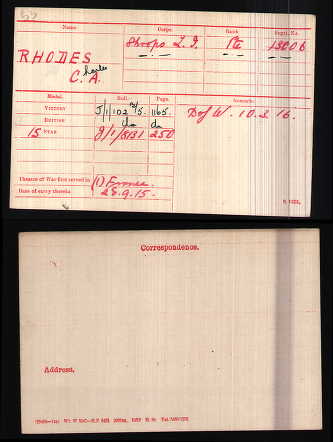 Name. Corps. Rank. Regtl. No.
RHODES Shrops L.I. Pte 15006
Charles
C. A.
Medal. Roll. Page. Remarks.
Victory J/1/102 B5. 1165. D of W. 10.3.16.
British do do
15 Star J/1/5131 250
Theatre of War first served in (1) France.
Date of entry therein 28.9.15.
Correspondence.
Address.